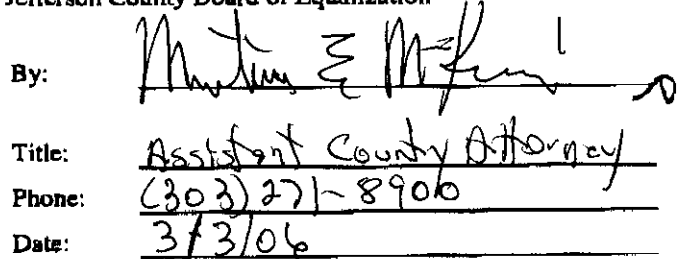 Jefferson County Board of Equalization
By: Martin E McK
Title: Assistant County Attorney
Phone: (303) 271-8900
Date: 3/3/06